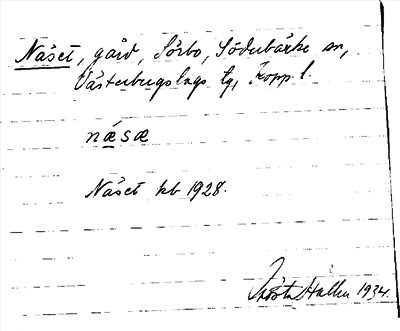 Näset, gård, Sörbo, Söderbärke sn,
Västerbergslags tg, Kopp. l.
näsæ
Näset kb 1928.
Gösta Hallin 1934.